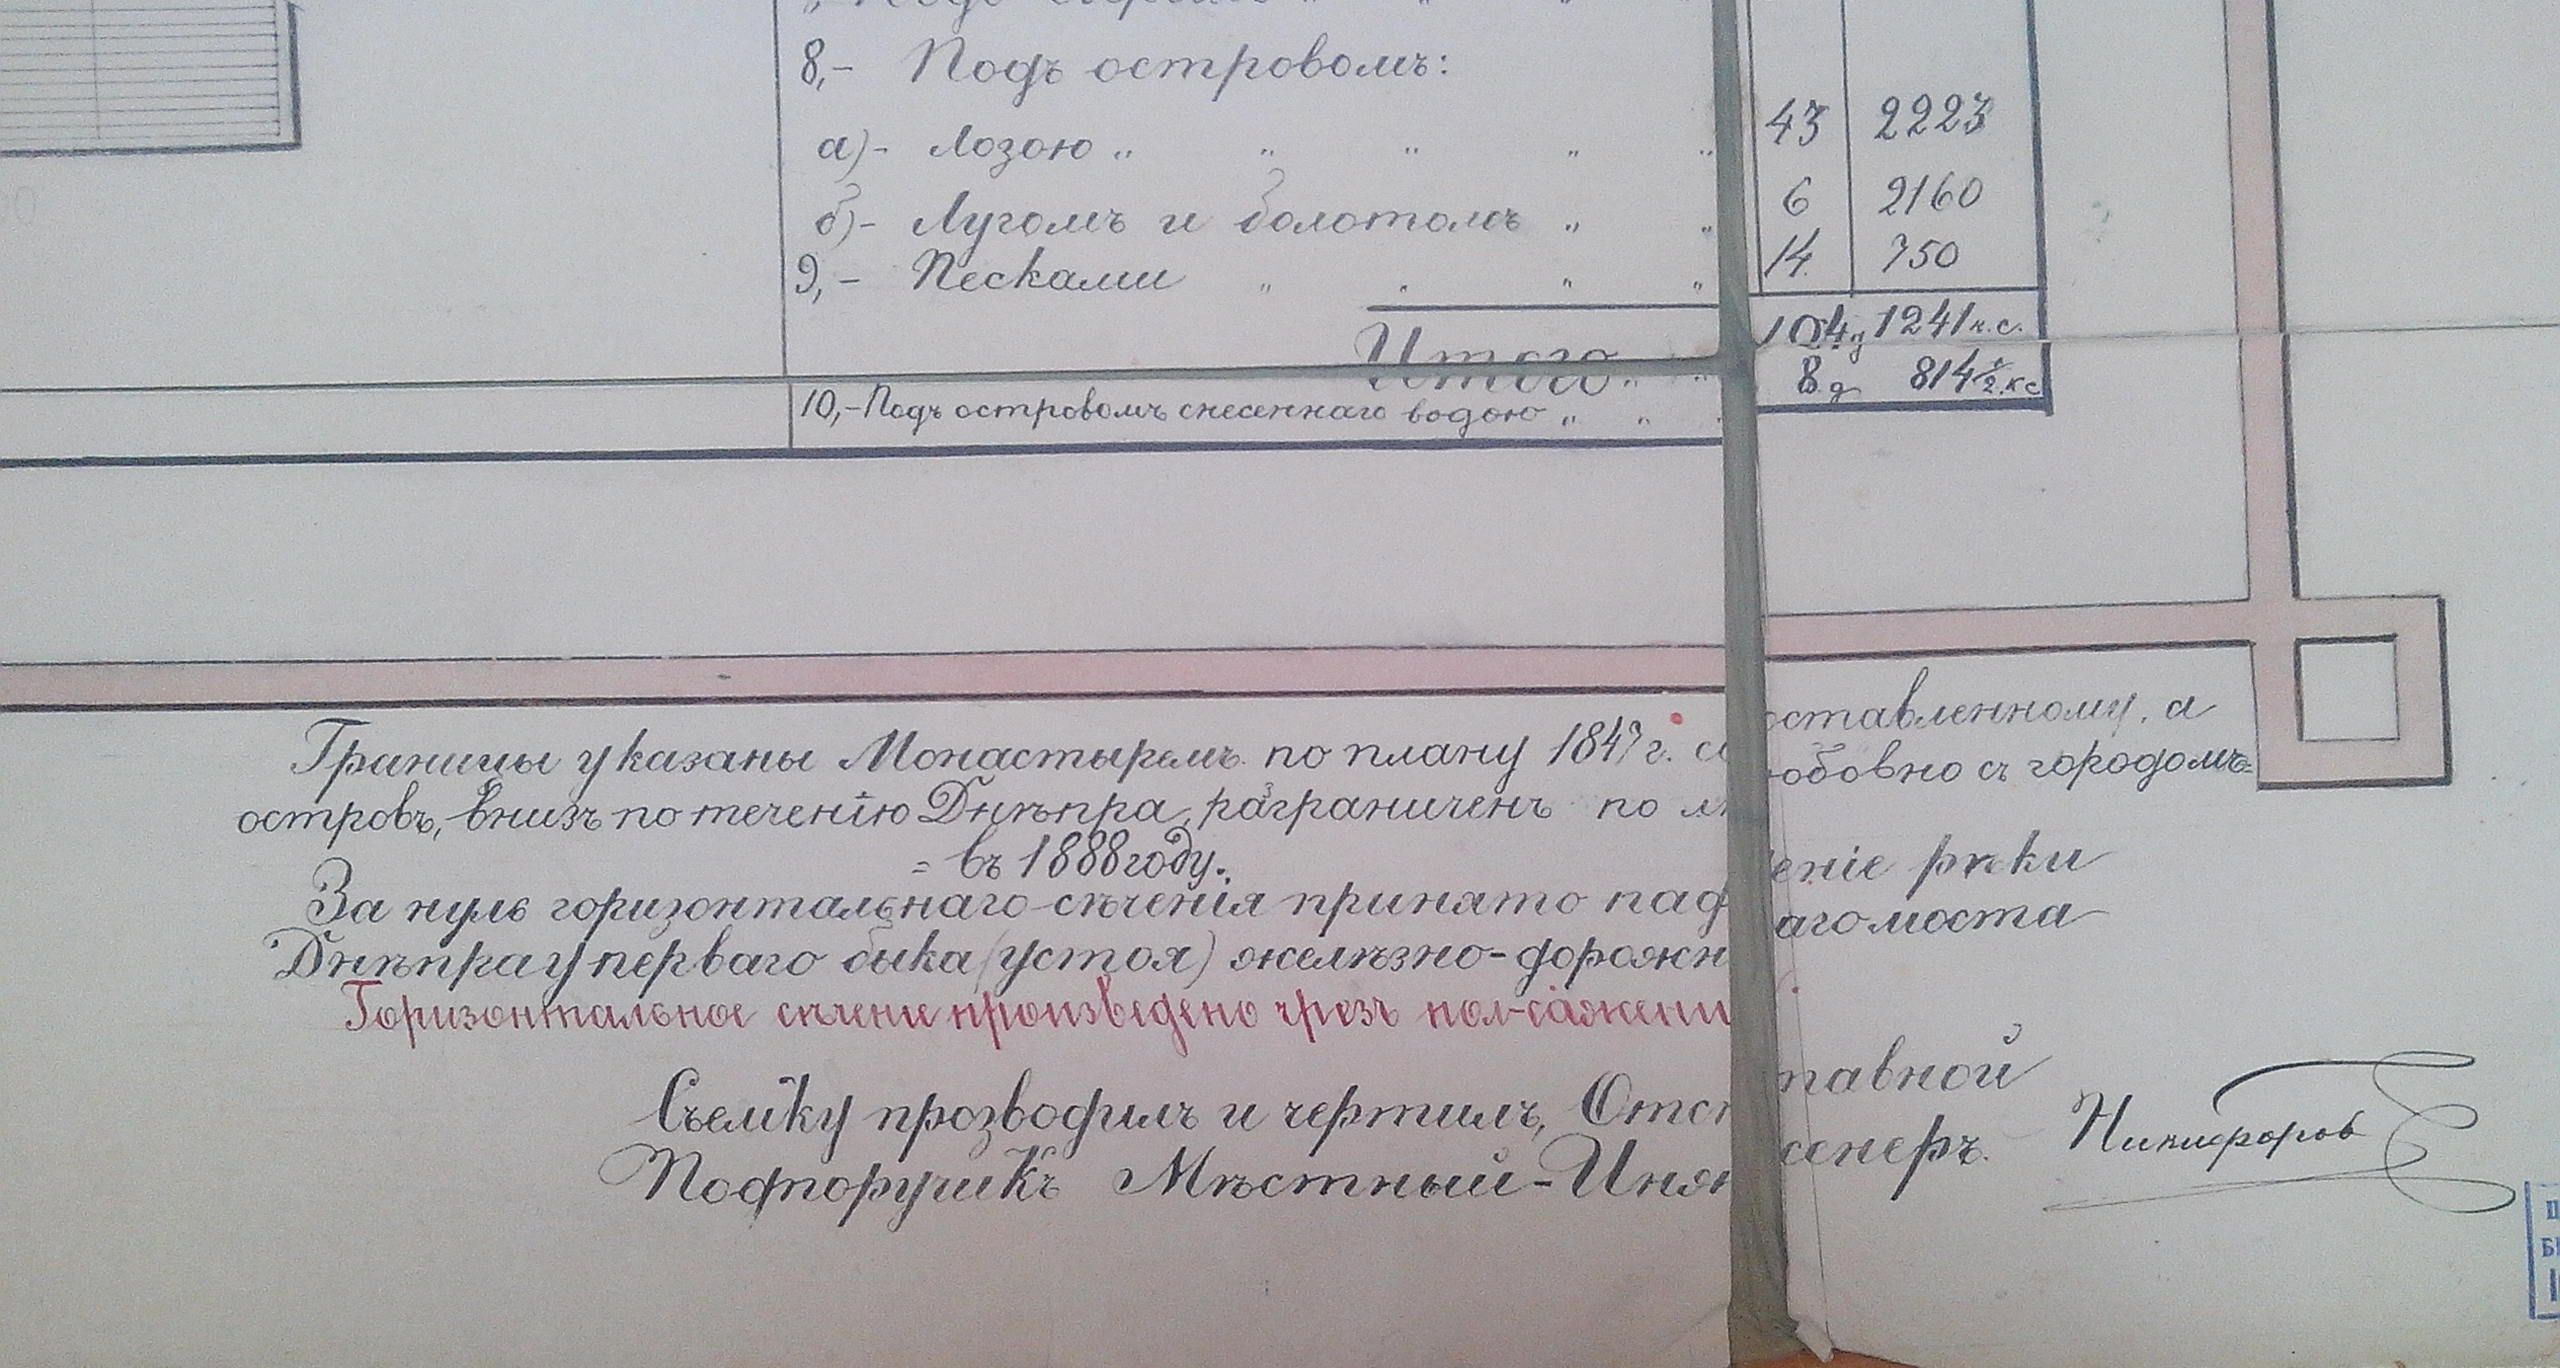 8,- Подъ островомъ:
а)- Лозою „ „ „ „ „ 43 2223
б)- Лугомъ и болотомъ „ „ 6 2160
9,- Песками „ „ „ „ 14 750
Итого „ „ 104 д 1241 к.с.
10,- Подъ островомъ снесеннаго водою „ „ 8 д 814 1/2 к.с
Границы указаны Монастыремъ по плану 1847 г. составленному, а
островъ, внизъ по теченію Днѣпра, разграниченъ по любовно съ городомъ=
= въ 1888 году.
За нуль горизонтальнаго сѣченія принято паденіе рѣки
Днѣпра у перваго быка (устоя) желѣзно-дорожнаго моста
Горизонтальное сѣчение произведено чрезъ пол-сажени
Съемку прозводилъ и чертилъ, Отставной
Подпоручикъ Мѣстный-Инженеръ. Никифоров